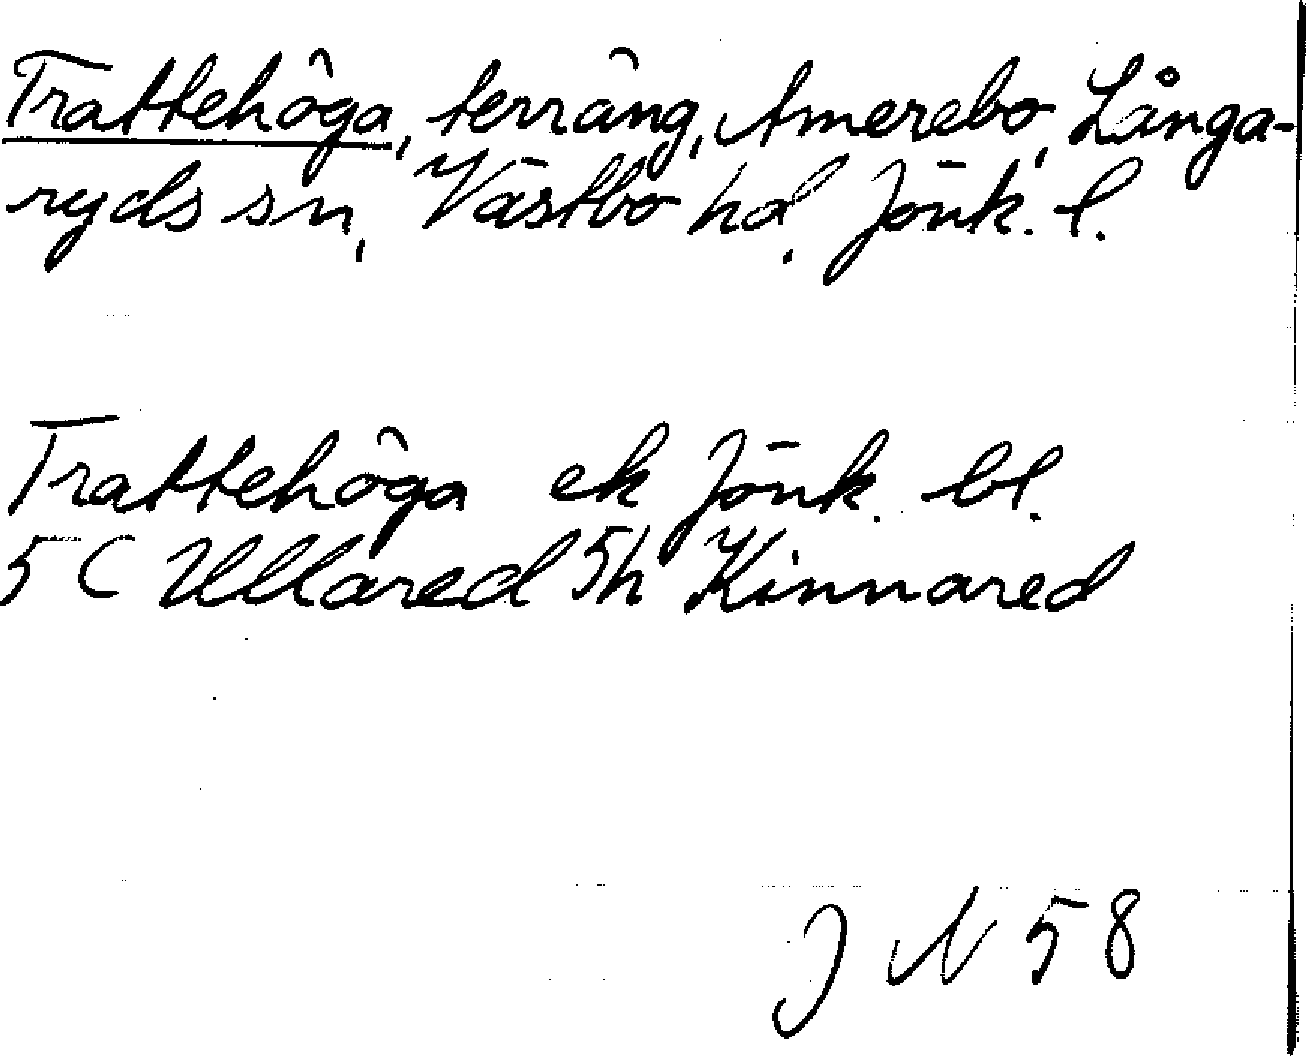 Trattehöga, terräng, Amerebo, Långa-
ryds sn, Västbo hd, Jönk. l.
Trattehöga ek Jönk. bl.
5 C Ullared 5h Kinnared
J N 58